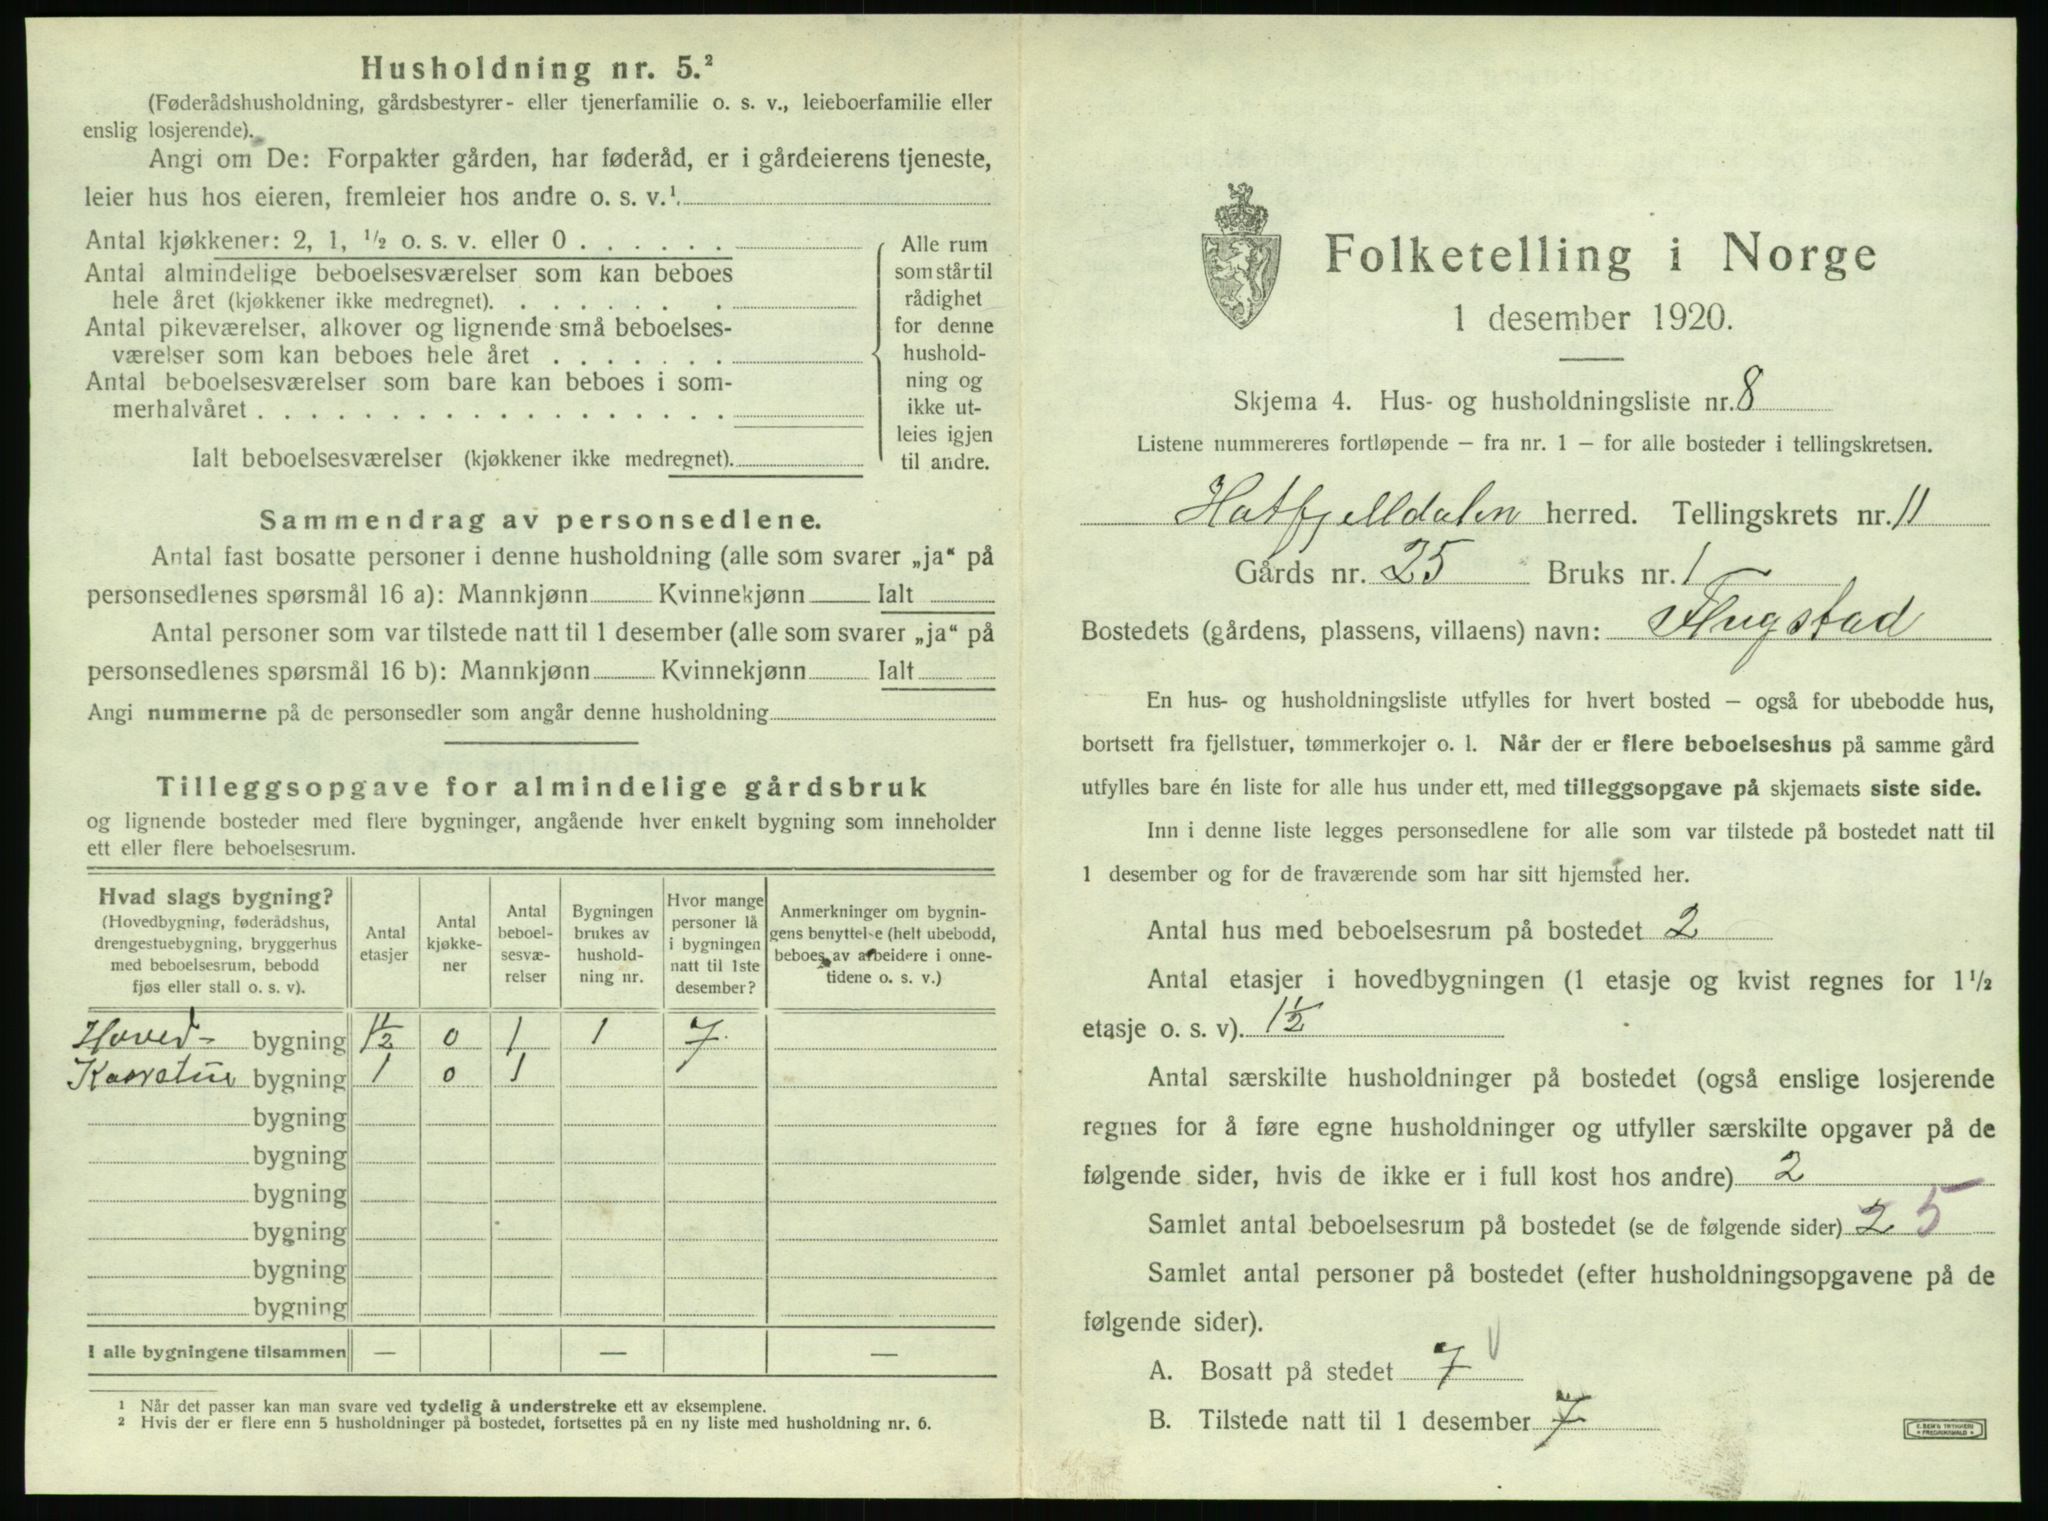 Husholdning nr. 5.²
(Føderådshusholdning, gårdsbestyrer- eller tjenerfamilie o. s. v., leieboerfamilie eller
enslig losjerende).
Angi om De: Forpakter gården, har føderåd, er i gårdeierens tjeneste,
leier hus hos eieren, fremleier hos andre o. s. v.¹
Antal kjøkkener: 2, 1, ½ o. s. v. eller 0 . . . . . .
Antal almindelige beboelsesværelser som kan beboes
hele året (kjøkkener ikke medregnet). . . . . . . .
Antal pikeværelser, alkover og lignende små beboelses-
værelser som kan beboes hele året . . . . . . .
Antal beboelsesværelser som bare kan beboes i som-
merhalvåret . . . . . . . . . . . . . . . . . .
Ialt beboelsesværelser (kjøkkener ikke medregnet).
Alle rum
som står til
rådighet
for denne
hushold-
ning og
ikke ut-
leies igjen
til andre.
Sammendrag av personsedlene.
Antal fast bosatte personer i denne husholdning (alle som svarer „ja“ på
personsedlenes spørsmål 16 a): Mannkjønn Kvinnekjønn Ialt
Antal personer som var tilstede natt til 1 desember (alle som svarer „ja“ på
personsedlenes spørsmål 16 b): Mannkjønn Kvinnekjønn Ialt
Angi nummerne på de personsedler som angår denne husholdning
Tilleggsopgave for almindelige gårdsbruk
og lignende bosteder med flere bygninger, angående hver enkelt bygning som inneholder
ett eller flere beboelsesrum.
Hvad slags bygning?
(Hovedbygning, føderådshus,
drengestuebygning, bryggerhus
med beboelsesrum, bebodd
fjøs eller stall o. s. v).
Antal
etasjer
Antal
kjøkke-
ner
Antal
beboel-
sesvæ-
relser
Bygningen
brukes av
hushold-
ning nr.
Hvor mange
personer lå
i bygningen
natt til 1ste
desember?
Anmerkninger om bygnin-
gens benyttelse (helt ubebodd,
beboes av arbeidere i onne-
tidene o. s. v.)
Hoved- bygning 1½ 0 1 1 7
bygning 1 0 1
bygning
bygning
bygning
bygning
bygning
bygning
I alle bygningene tilsammen — — —
¹ Når det passer kan man svare ved tydelig å understreke ett av eksemplene.
² Hvis der er flere enn 5 husholdninger på bostedet, fortsettes på en ny liste med husholdning nr. 6.
Folketelling i Norge
1 desember 1920.
Skjema 4. Hus- og husholdningsliste nr. 8
Listene nummereres fortløpende – fra nr. 1 – for alle bosteder i tellingskretsen.
Hatfjelldalen herred. Tellingskrets nr. 11
Gårds nr. 25 Bruks nr. 1
Bostedets (gårdens, plassens, villaens) navn: Flugstad
En hus- og husholdningsliste utfylles for hvert bosted – også for ubebodde hus,
bortsett fra fjellstuer, tømmerkojer o. l. Når der er flere beboelseshus på samme gård
utfylles bare én liste for alle hus under ett, med tilleggsopgave på skjemaets siste side.
Inn i denne liste legges personsedlene for alle som var tilstede på bostedet natt til
1 desember og for de fraværende som har sitt hjemsted her.
Antal hus med beboelsesrum på bostedet 2
Antal etasjer i hovedbygningen (1 etasje og kvist regnes for 1½
etasje o. s. v). 1½
Antal særskilte husholdninger på bostedet (også enslige losjerende
regnes for å føre egne husholdninger og utfyller særskilte opgaver på de
følgende sider, hvis de ikke er i full kost hos andre) 2
Samlet antal beboelsesrum på bostedet (se de følgende sider) 2 5
Samlet antal personer på bostedet (efter husholdningsopgavene på de
følgende sider).
A. Bosatt på stedet 7 v
B. Tilstede natt til 1 desember 7